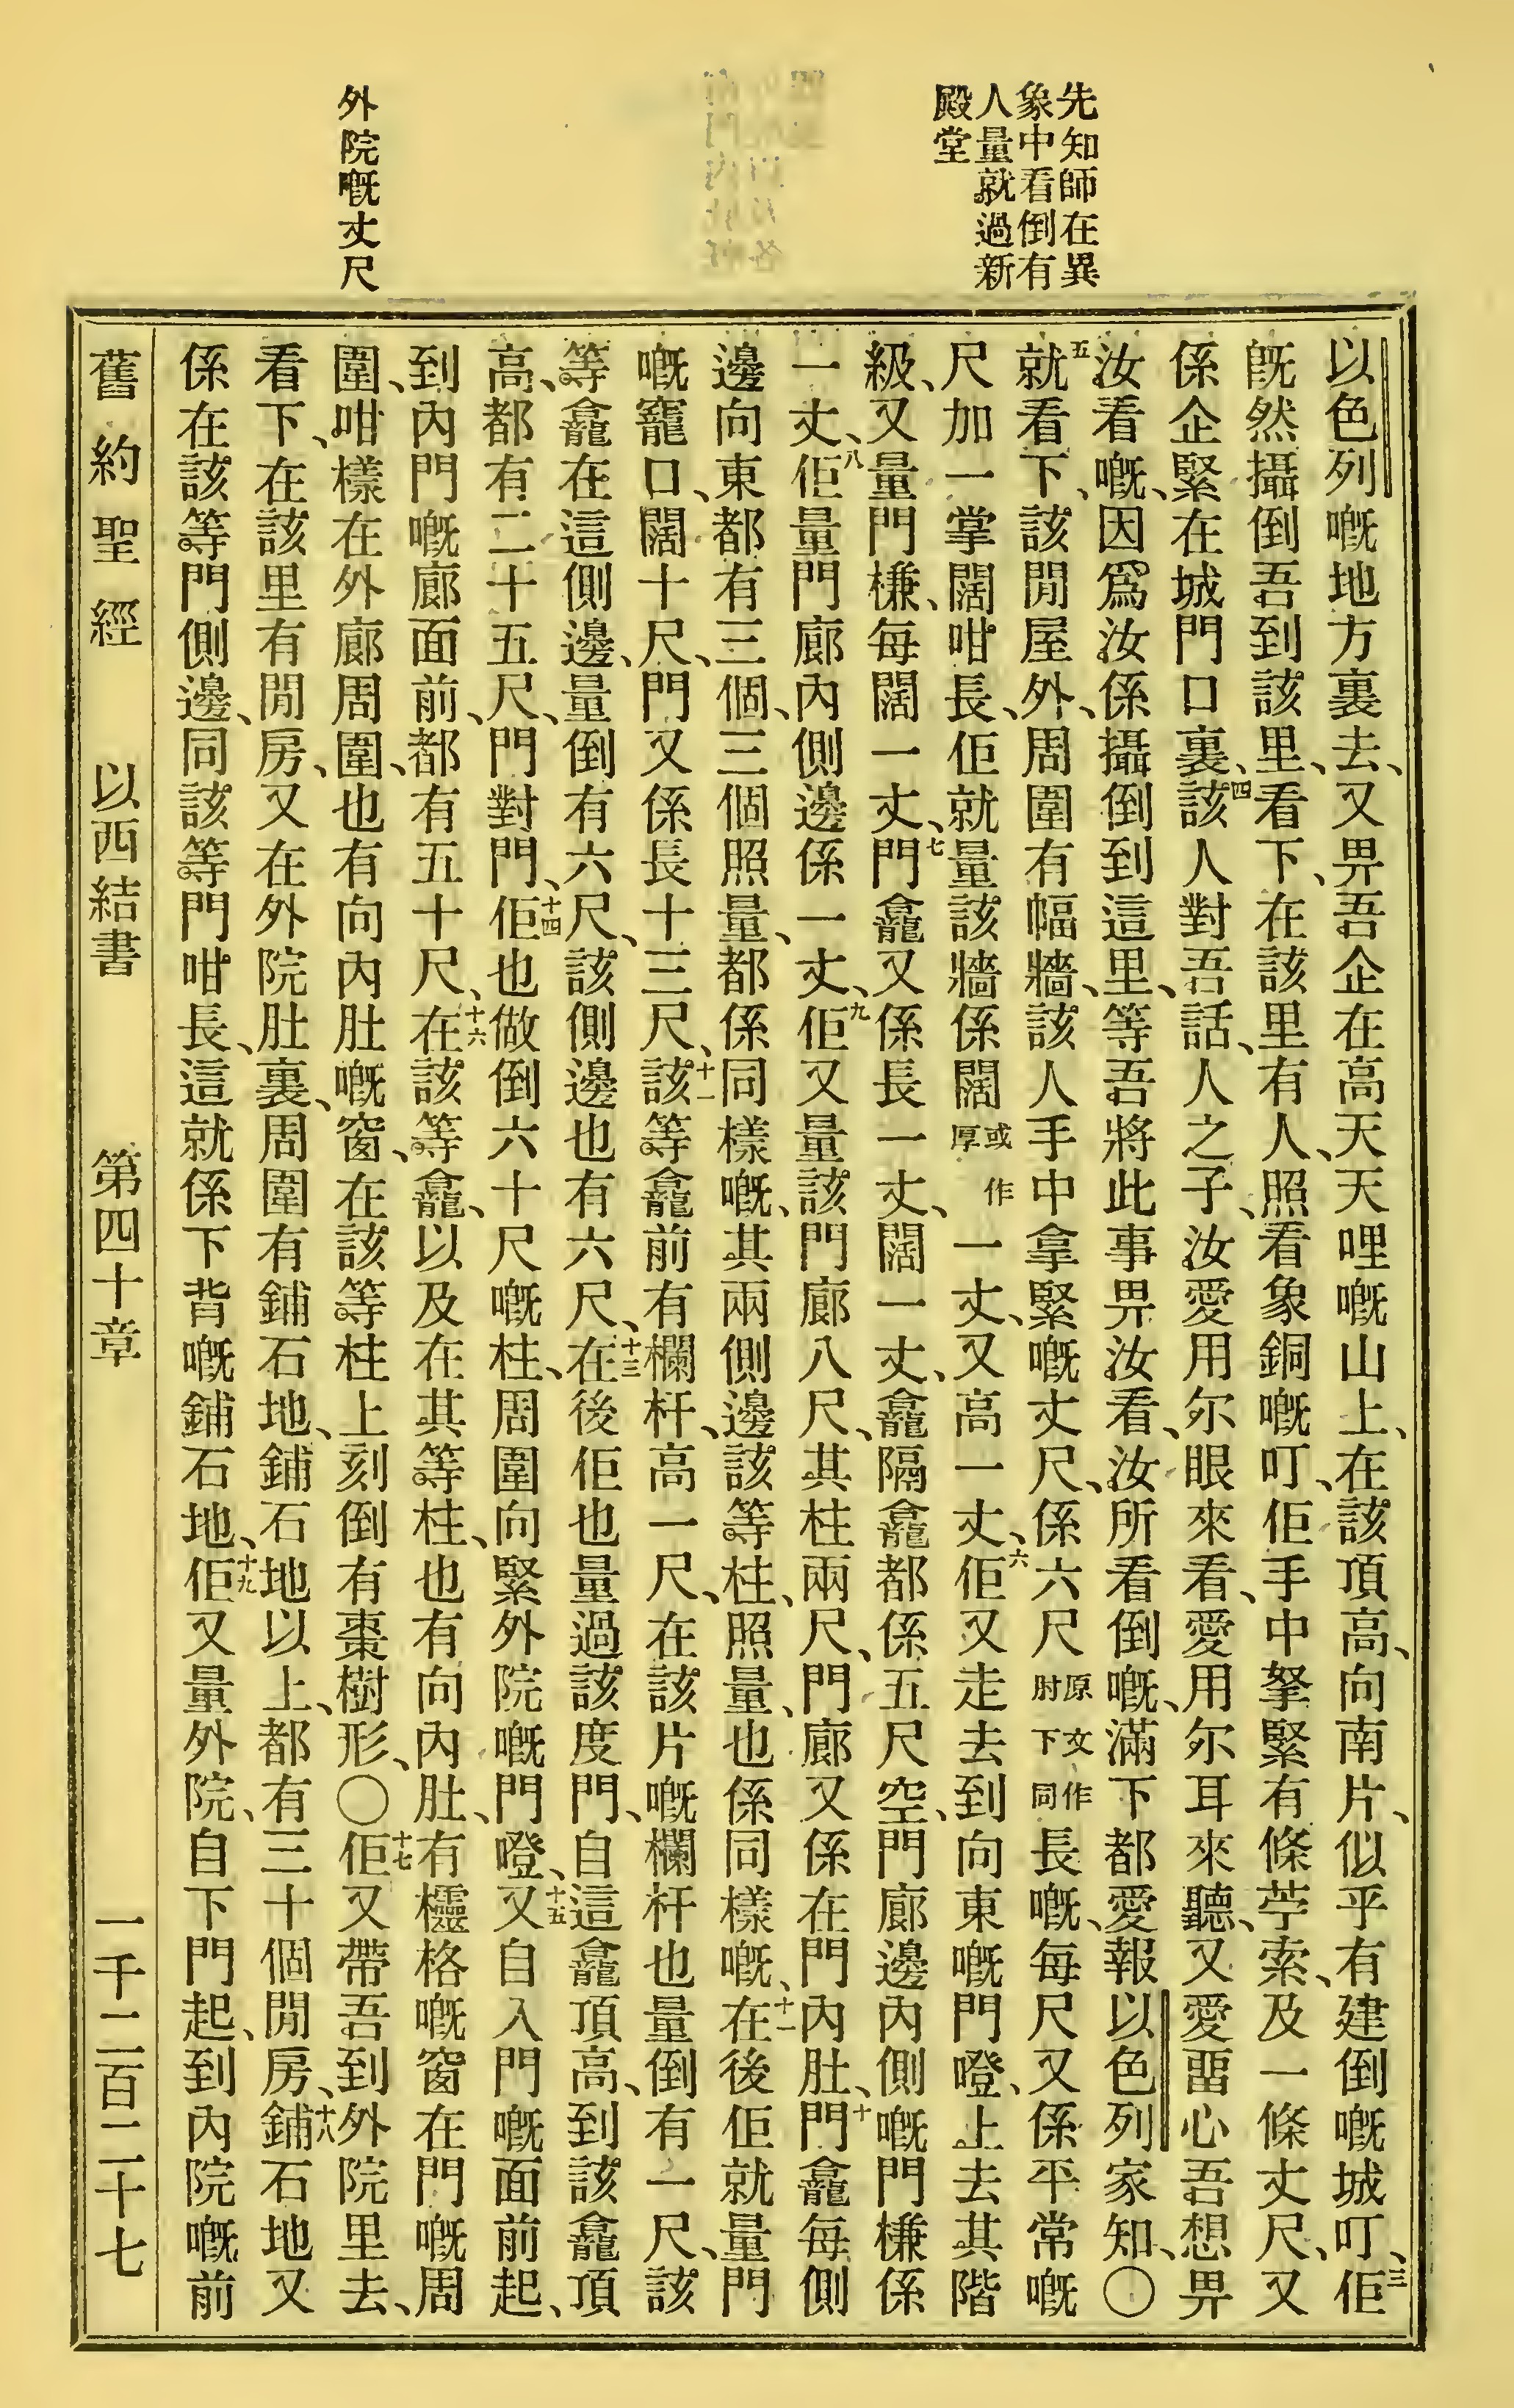 先知師在異
象中看倒有
人量就過新
殿堂
外院嘅丈尺
以色列嘅地方裏去、又畀吾企在高天天哩嘅山上、在該頂高、向南片、似乎有建倒嘅城叮、三佢
旣然攝倒吾到該里、看下、在該里有人、照看象銅嘅叮、佢手中拏緊有條苧索、及一條丈尺、又
係企緊在城門口裏、四該人對吾話、人之子、汝愛用尔眼來看、愛用尔耳來聽、又愛畱心吾想畀
汝看嘅、因爲汝係攝倒到這里、等吾將此事畀汝看、汝所看倒嘅、滿下都愛報以色列家知、〇
五就看下、該閒屋外、周圍有幅牆、該人手中拿緊嘅丈尺、係六尺原文作肘下同長嘅、每尺又係平常嘅
尺加一掌闊咁長、佢就量該牆係闊或作厚一丈、又高一丈、六佢又走去到向東嘅門嶝、上去其階
級、又量門槏、每闊一丈、七門龕又係長一丈、闊一丈、龕隔龕都係五尺空、門廊邊內側嘅門槏係
一丈、八佢量門廊內側邊係一丈、九佢又量該門廊八尺、其柱兩尺、門廊又係在門內肚、十門龕每側
邊向東都有三個、三個照量、都係同樣嘅、其兩側邊該等柱、照量、也係同樣嘅、十一在後佢就量門
嘅竉口、闊十尺、門又係長十三尺、十一該等龕前有欄杆、高一尺、在該片嘅欄杆也量倒有一尺、該
等龕在這側邊、量倒有六尺、該側邊也有六尺、十三在後佢也量過該度門、自這龕頂高、到該龕頂
高、都有二十五尺、門對門、十四佢也做倒六十尺嘅柱、周圍向緊外院嘅門嶝、十五又自入門嘅面前起、
到內門嘅廊面前、都有五十尺、十六在該等龕、以及在其等柱、也有向內肚、有櫺格嘅窗在門嘅周
圍、咁樣在外廊周圍、也有向內肚嘅窗、在該等柱上刻倒有棗樹形、〇十七佢又帶吾到外院里去、
看下、在該里有閒房、又在外院肚裏、周圍有鋪石地、鋪石地以上、都有三十個閒房、十八鋪石地又
係在該等門側邊、同該等門咁長、這就係下背嘅鋪石地、十九佢又量外院、自下門起、到內院嘅前
舊約聖經 以西結書 第四十章 一千二百二十七